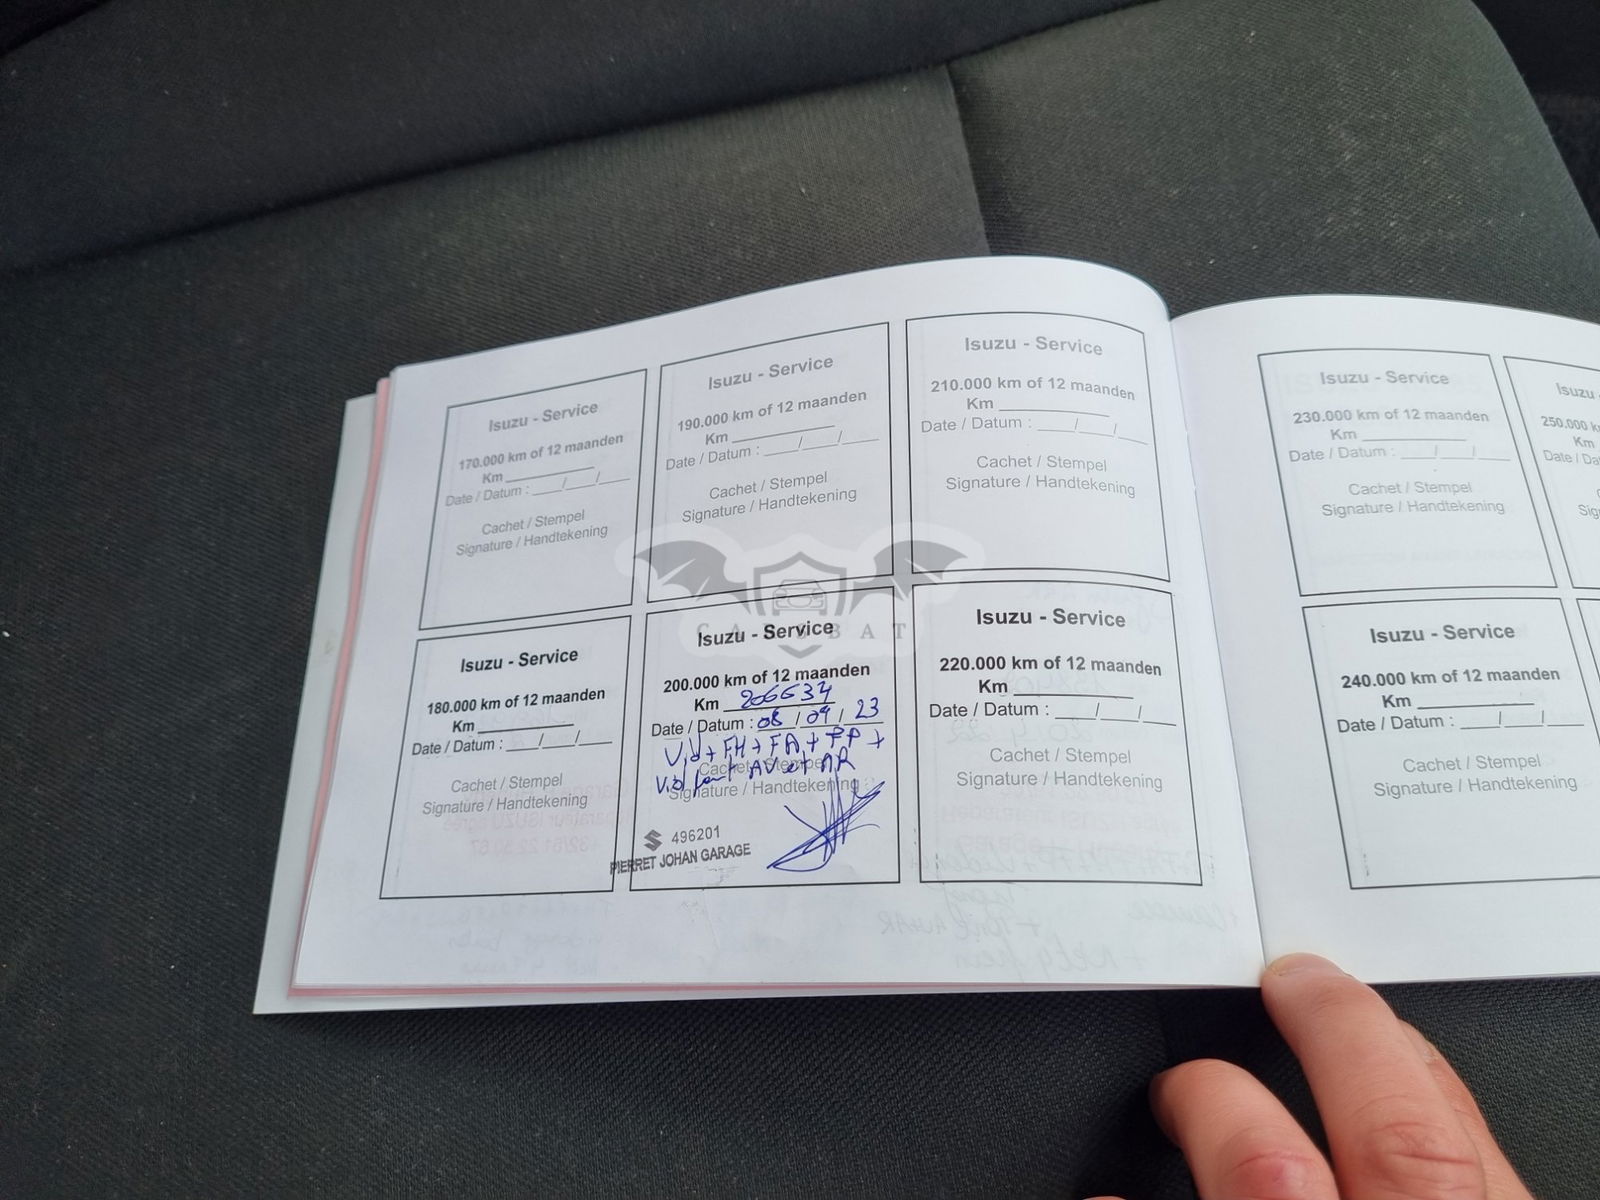 Isuzu - Service
170.000 km of 12 maanden
Km
Date / Datum : __/__/__
Cachet / Stempel
Signature / Handtekening
Isuzu - Service
190.000 km of 12 maanden
Km
Date / Datum : __/__/__
Cachet / Stempel
Signature / Handtekening
Isuzu - Service
210.000 km of 12 maanden
Km
Date / Datum : __/__/__
Cachet / Stempel
Signature / Handtekening
Isuzu - Service
230.000 km of 12 maanden
Km
Date / Datum : __/__/__
Cachet / Stempel
Signature / Handtekening
Isuzu
250.000
Km
Date
Isuzu - Service
180.000 km of 12 maanden
Km
Date / Datum : __/__/__
Cachet / Stempel
Signature / Handtekening
Isuzu - Service
200.000 km of 12 maanden
Km 206634
Date / Datum : 08 / 09 / 23
Vid + FH + FA + FP +
Vid AV et AR
Cachet / Stempel
Signature / Handtekening
496201
PIERRET JOHAN GARAGE
Isuzu - Service
220.000 km of 12 maanden
Km
Date / Datum : __/__/__
Cachet / Stempel
Signature / Handtekening
Isuzu - Service
240.000 km of 12 maanden
Km
Date / Datum : __/__/__
Cachet / Stempel
Signature / Handtekening
CARUBAT